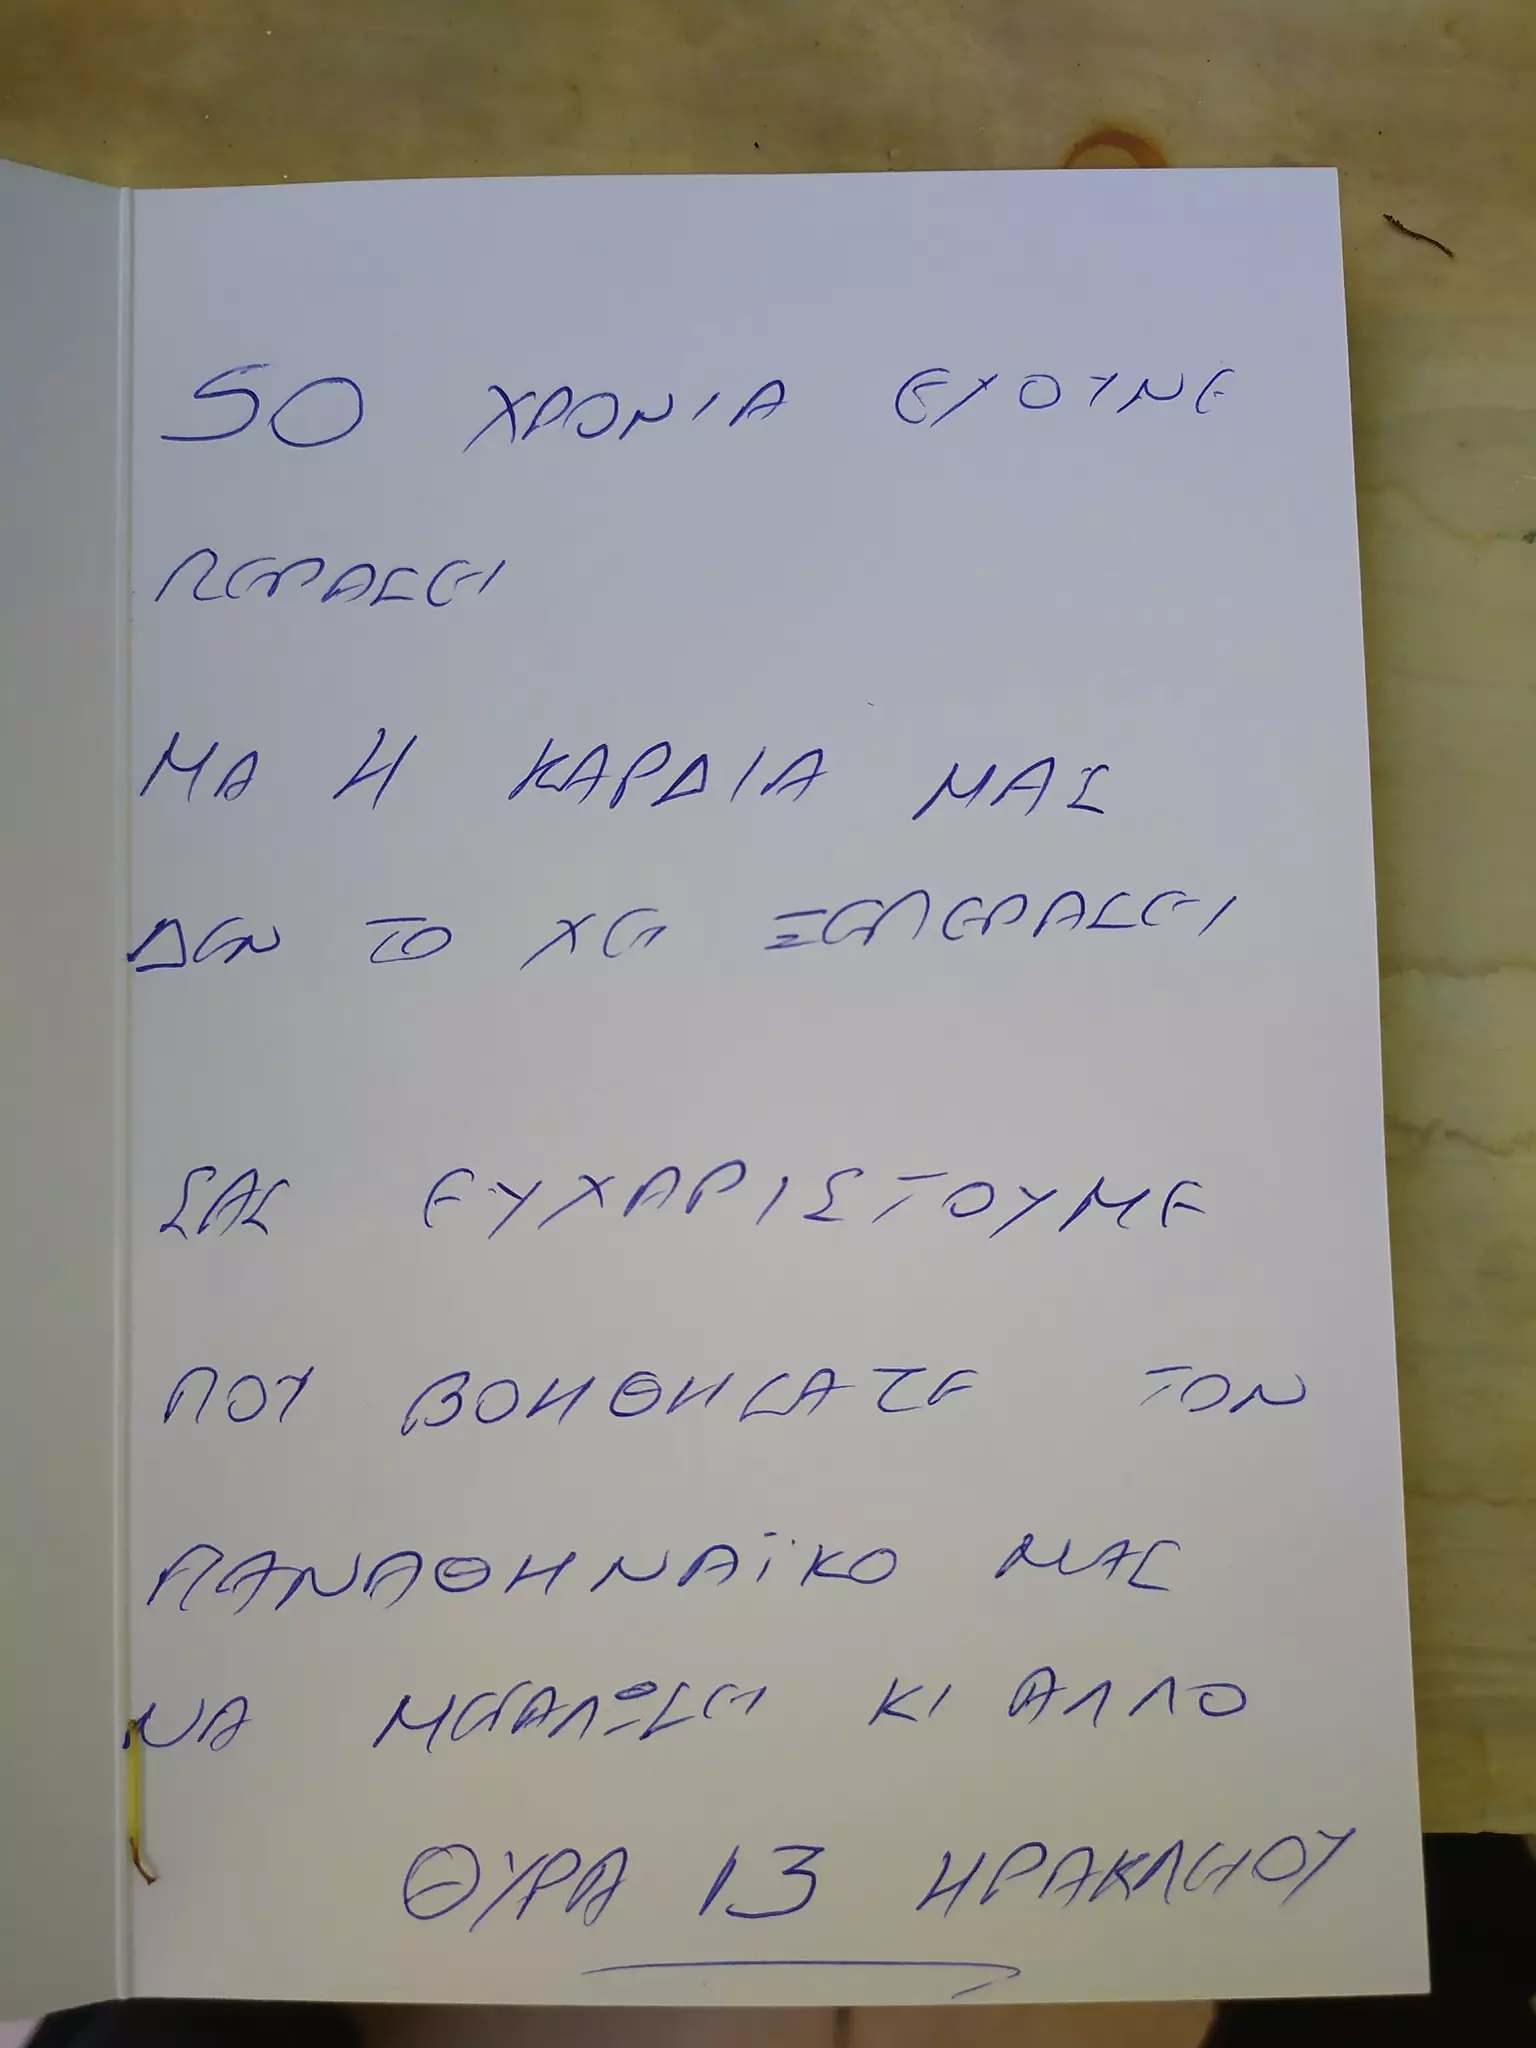 50 ΧΡΟΝΙΑ ΕΧΟΥΝΕ
ΠΕΡΑΣΕΙ
ΜΑ Η ΚΑΡΔΙΑ ΜΑΣ
ΔΕΝ ΤΟ ΧΕΙ ΞΕΠΕΡΑΣΕΙ
ΣΑΣ ΕΥΧΑΡΙΣΤΟΥΜΕ
ΠΟΥ ΒΟΗΘΗΣΑΤΕ ΤΟΝ
ΠΑΝΑΘΗΝΑΪΚΟ ΜΑΣ
ΝΑ ΜΕΓΑΛΩΣΕΙ ΚΙ ΑΛΛΟ
ΘΥΡΑ 13 ΗΡΑΚΛΕΙΟΥ